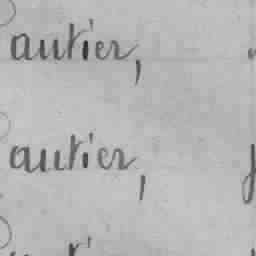 autier,
autier,